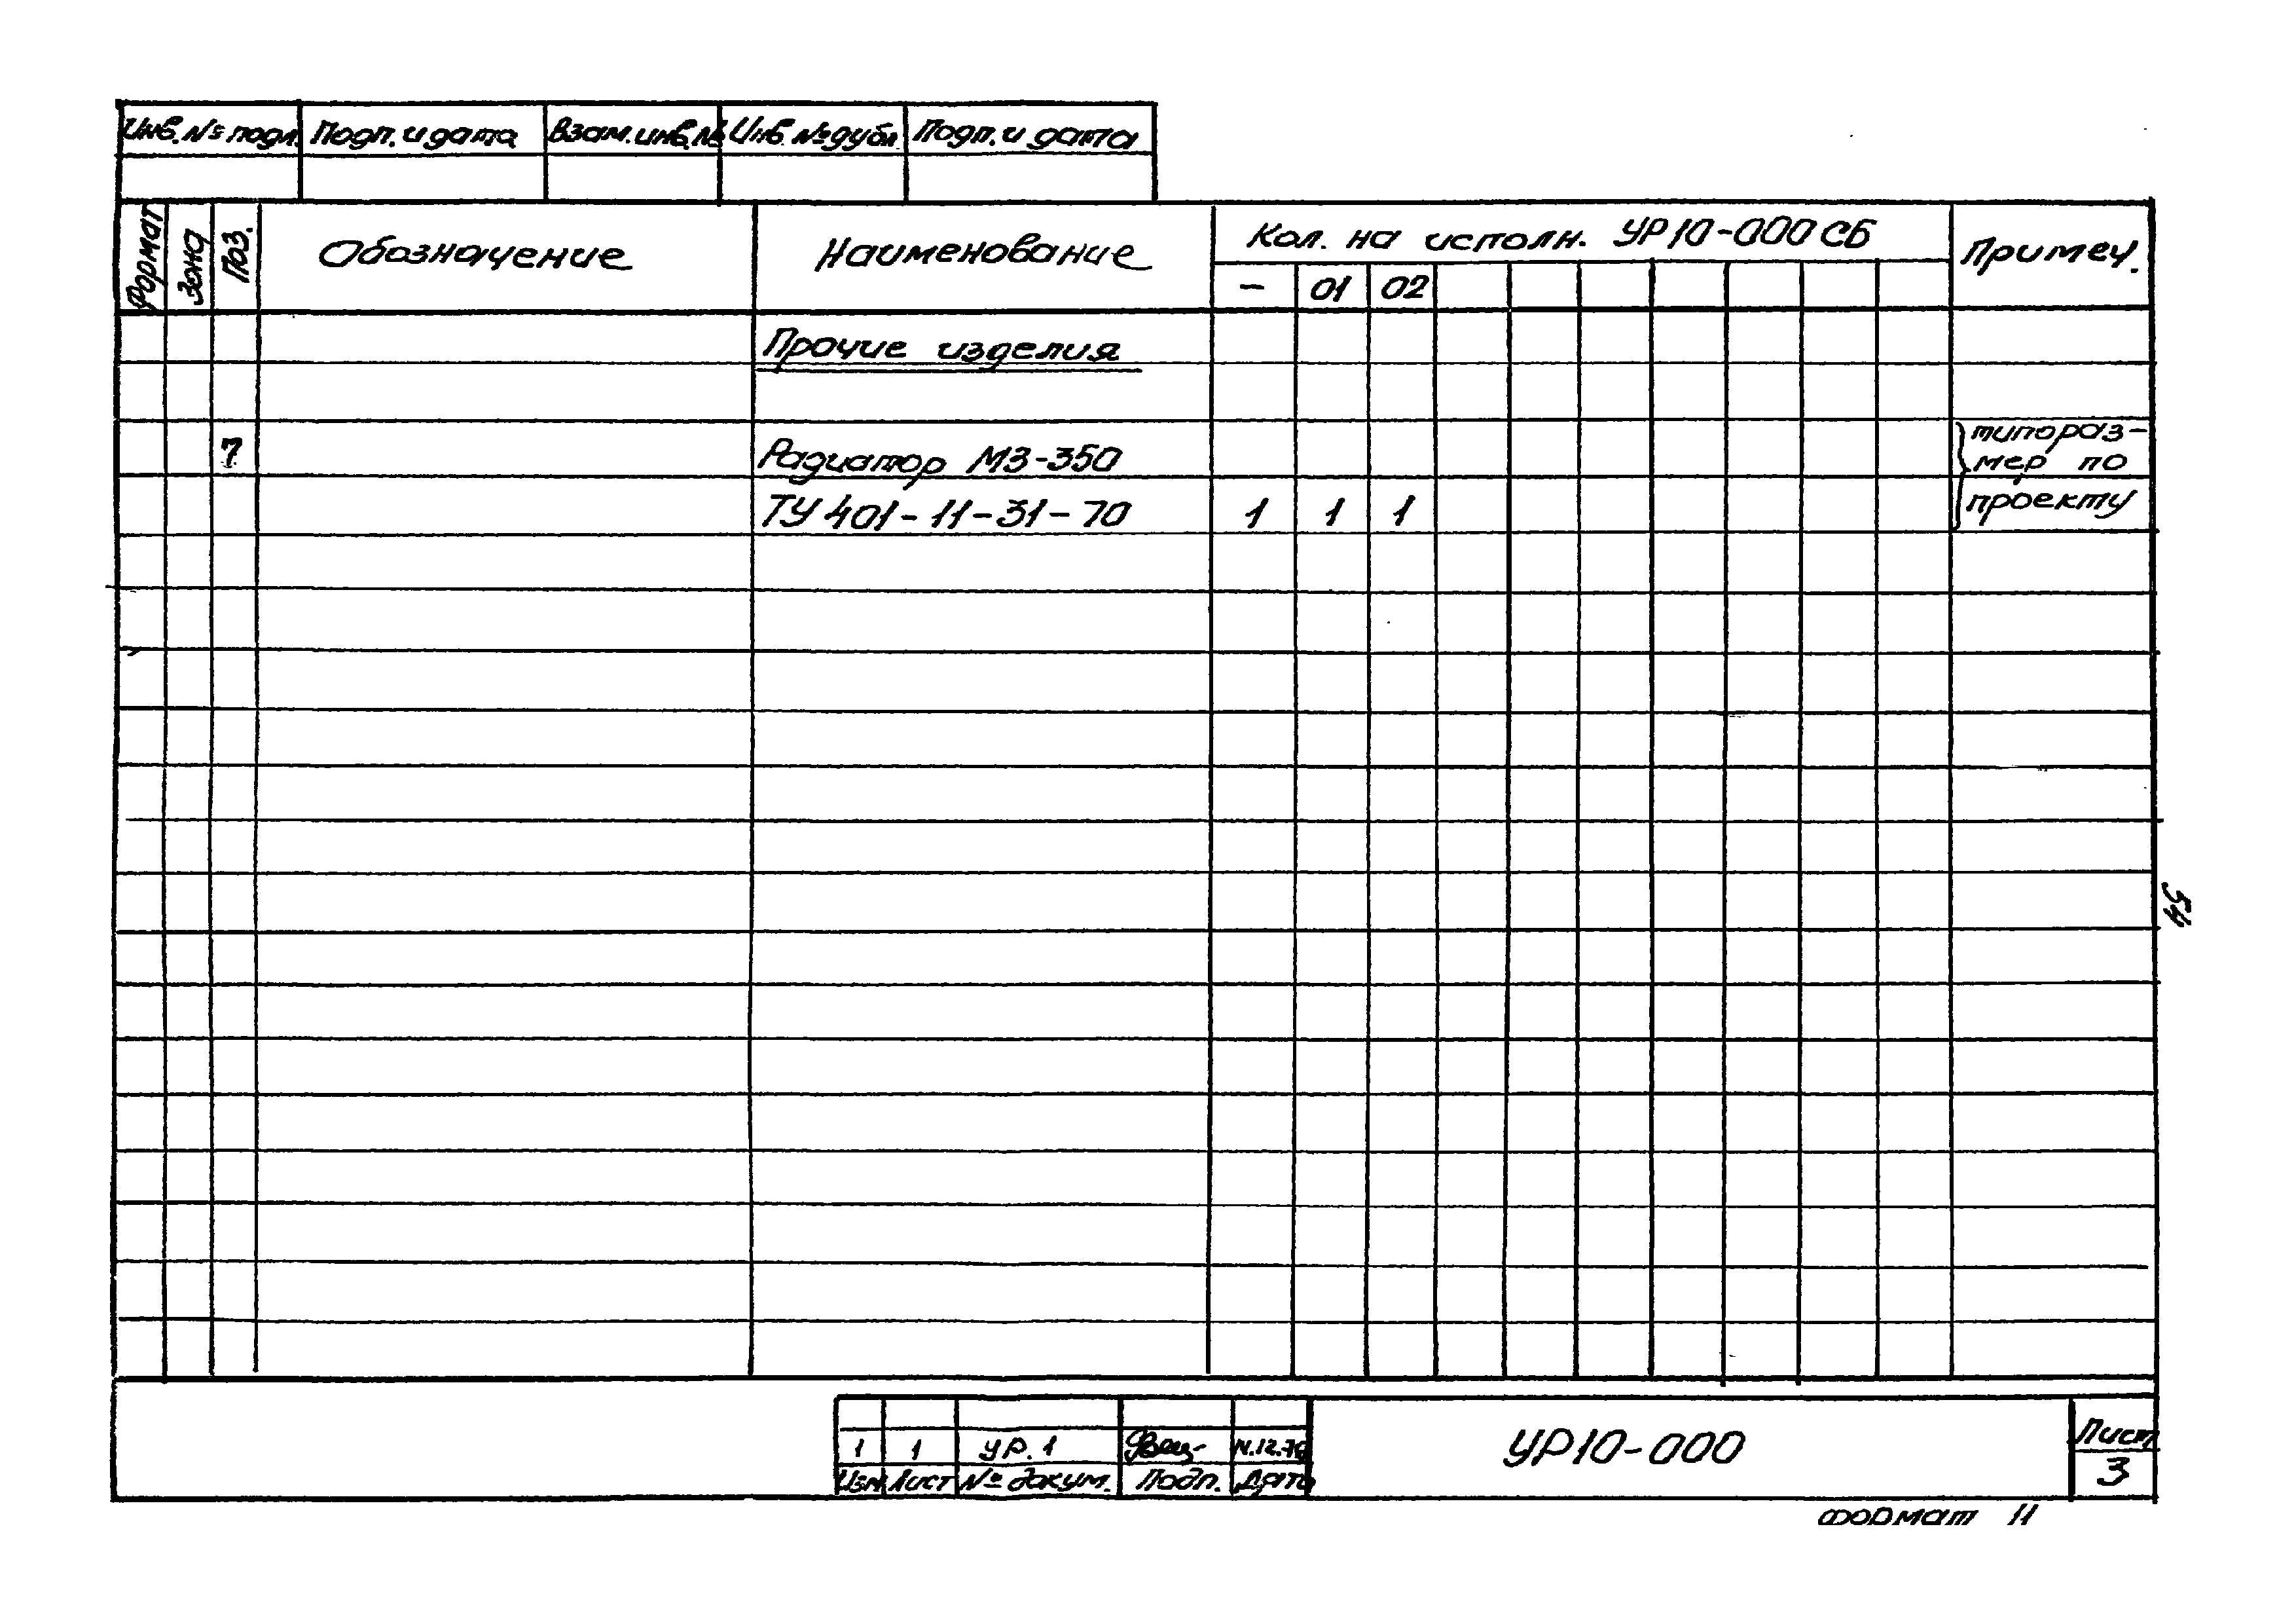 Инв.№ подл. Подп. и дата Взам.инв.№ Инв.№дубл Подп. и дата
Формат Зона Поз. Обозначение Наименование Кол. на исполн. УР10-000 СБ Примеч.
- 01 02
Прочие изделия
7 Радиатор М3-350 типораз-
мер по
ТУ 401-11-31-70 1 1 1 проекту
54
1 1 УР. 1 12.76
Изм Лист № докум. Подп. Дата
УР10-000
Лист
3
Формат 11